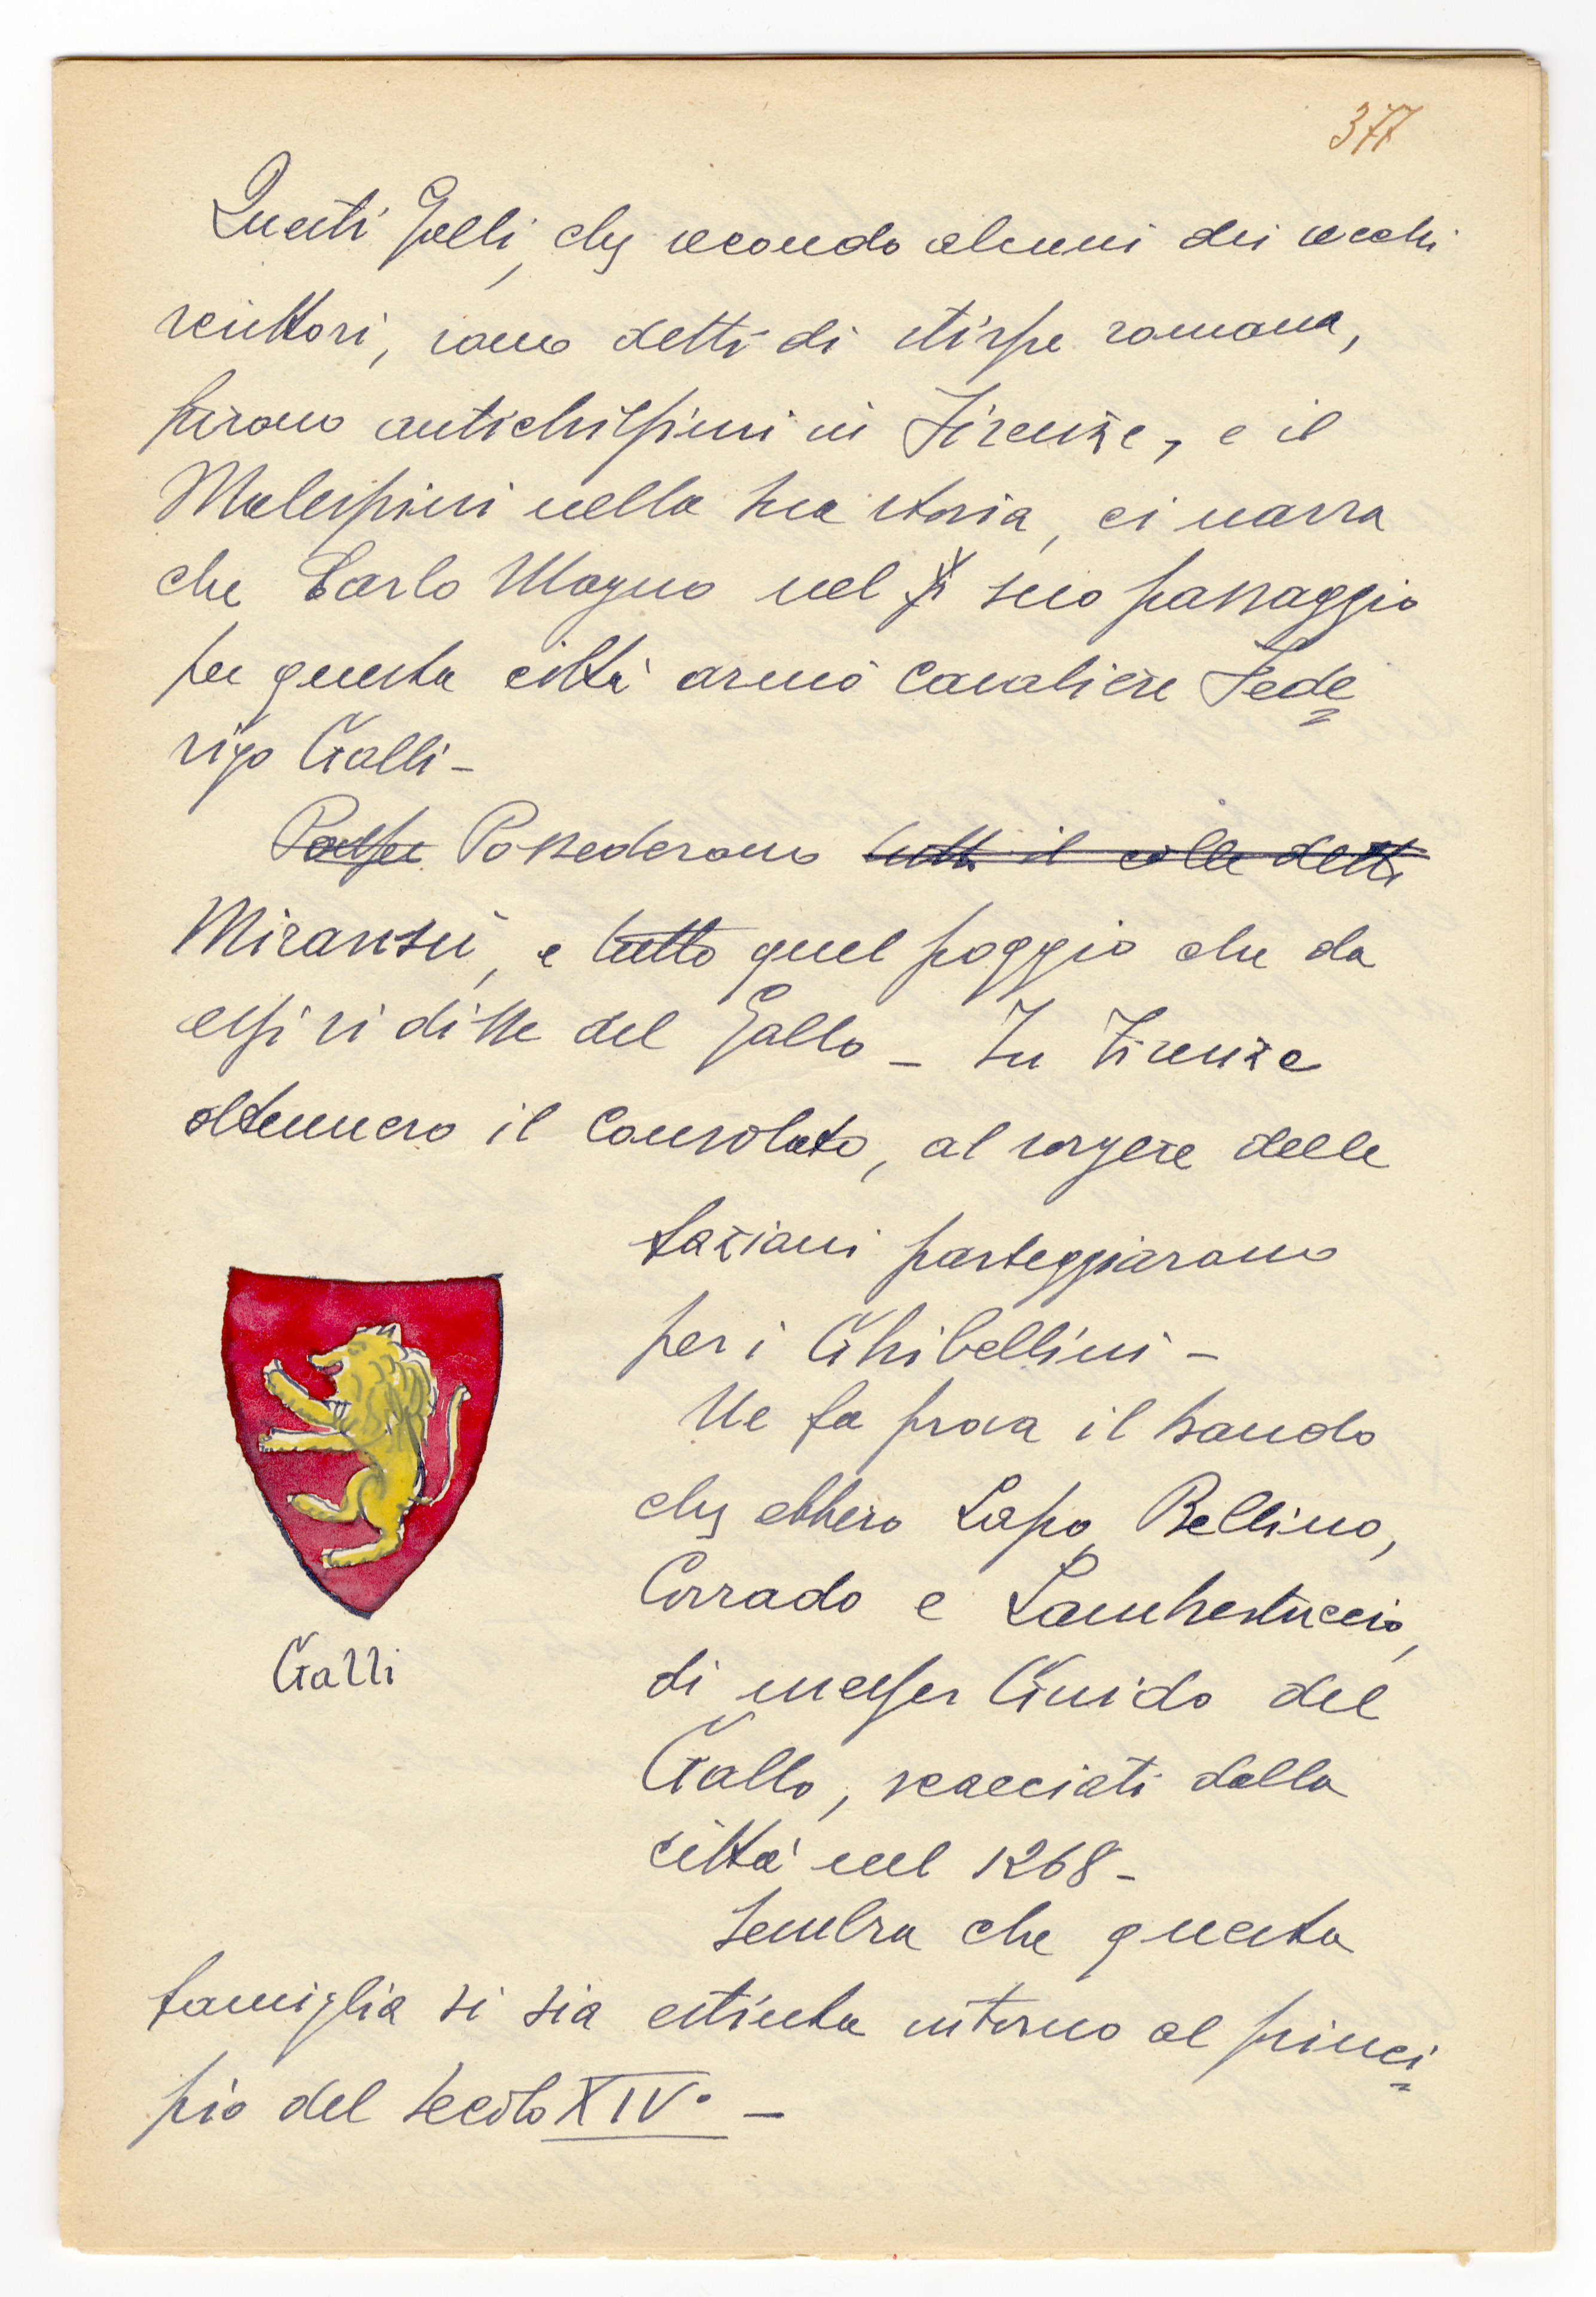 377
Questi Galli, che secondo alcuni dei vecchi
scrittori, sono detti di stirpe romana,
furono antichissimi in Firenze, e il
Malespini nella sua storia, ci narra
che Carlo Magno nel suo passaggio
per questa città armò cavaliere Fede
rigo Galli -
Possederono tutto il colle detto
Miransù, e tutto quel poggio che da
essi si disse del Gallo - In Firenze
ottennero il Consolato, al sorgere delle
fazioni parteggiarono
per i Ghibellini -
Ne fa prova il bando
che ebbero Lapo, Bellino,
Corrado e Lambertuccio,
di messer Guido del
Gallo, scacciati dalla
città nel 1268 -
Sembra che questa
famiglia si sia estinta intorno al princi
pio del secolo XIV° -
Galli